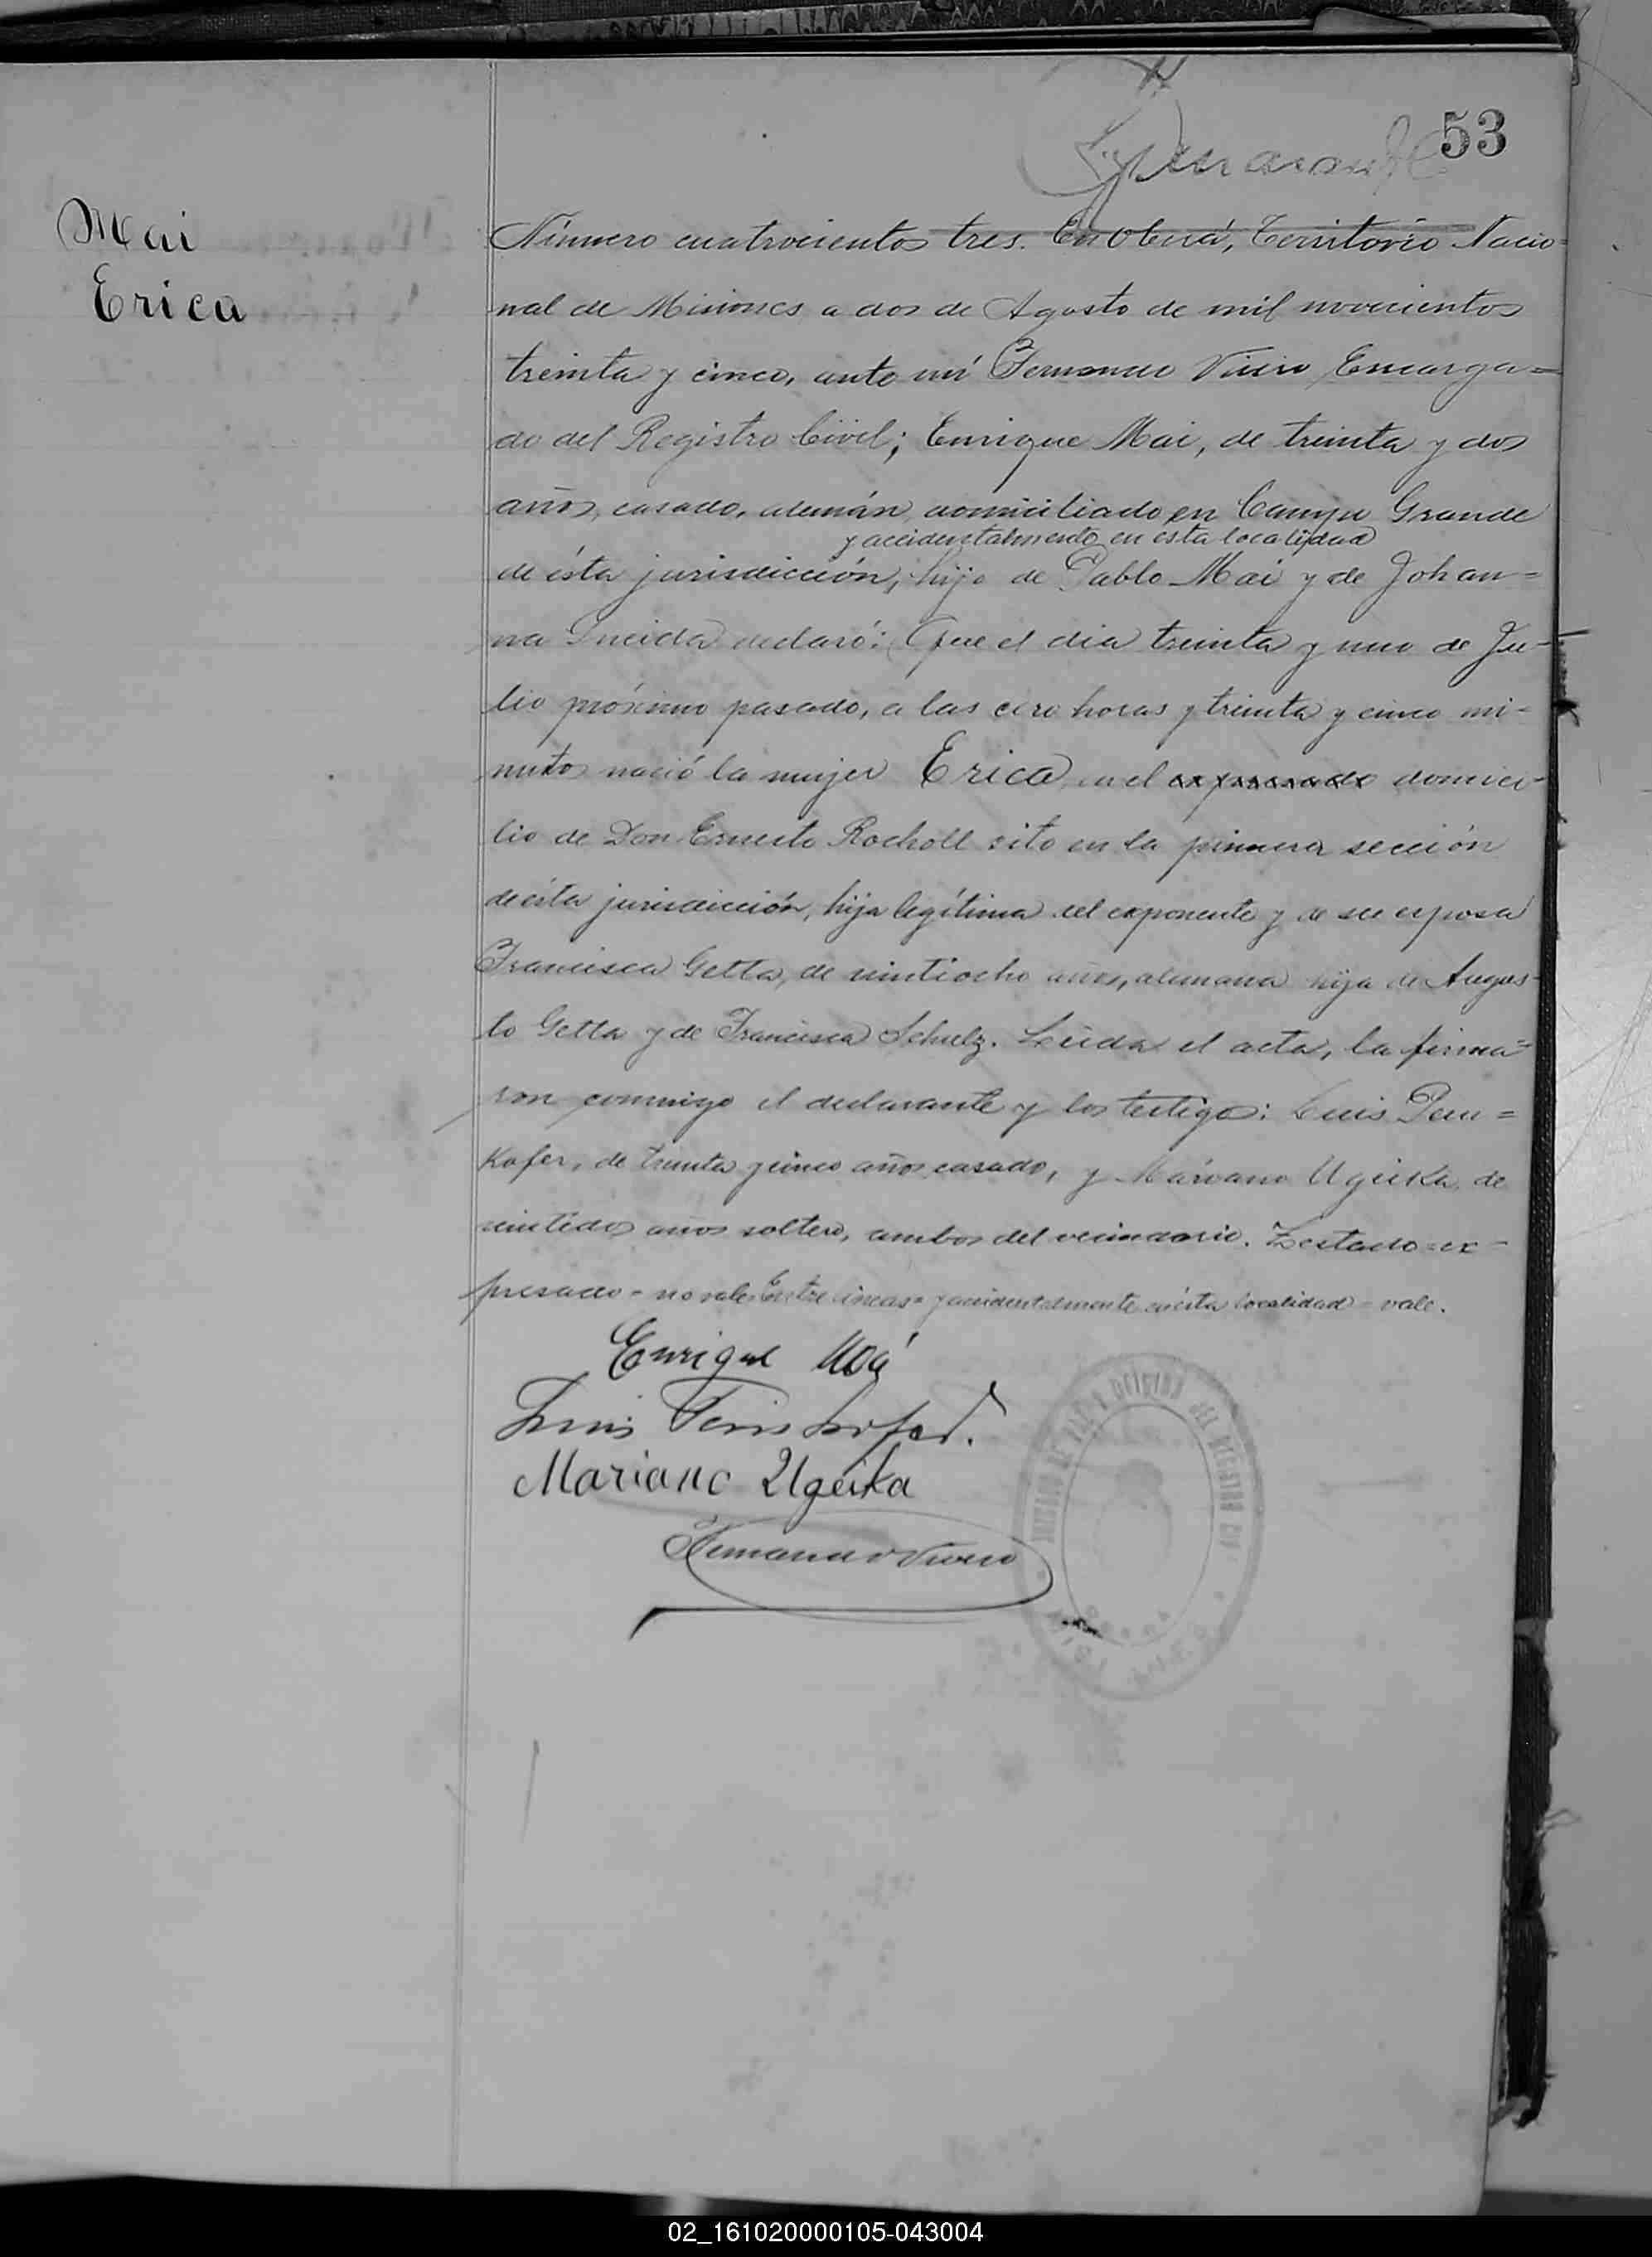 53
Mai
Erica
Número cuatrocientos tres. En Oberá, Territorio Nacio=
nal de Misiones a dos de Agosto de mil novecientos
treinta y cinco, ante mí Fernando Viein Encarga=
do del Registro Civil; Enrique Mai, de treinta y dos
años, casado, alemán, domiciliado en Campo Grande
y accidentalmente en ésta localidad
de ésta jurisdicción, hijo de Pablo Mai y de Johan=
na declaró: Que el dia treinta y uno de Ju-
lio próximo pasado, a las cero horas y treinta y cinco mi-
nutos nació la mujer Erica en el expresado domici-
lio de Don Ernesto Rocholl sito en la primera sección
de ésta jurisdicción, hija legítima del exponente y de su esposa
Francisca Getta, de veintiocho años, alemana hija de Augus-
to Getta y de Francisca Schulz. Leida el acta, la firma=
ron conmigo el declarante y los testigos: Luis Pen=
Kofer, de treinta y cinco años casado, y Mariano Ugeika, de
veintidos años soltero, ambos del vecindario. Testado=ex=
presado=no vale. Entre lineas=y accidentalmente en ésta localidad=vale.
Enrique Mai
Luis
Mariano Ugeika
Fernando
02_161020000105-043004